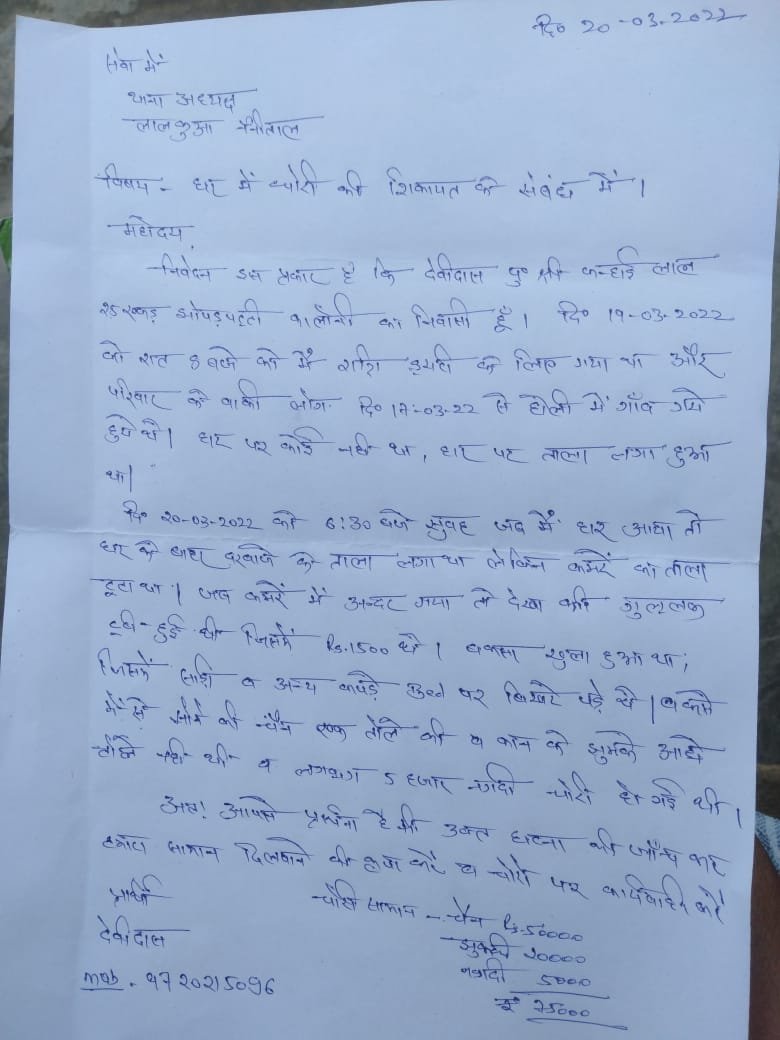 दि० 20-03-2022
सेवा में-
थाना अध्यक्ष
लालकुआ नैनीताल
विषय - घर में चोरी की शिकायत के संबंध में ।
महोदय,
निवेदन इस प्रकार है कि देवीदास पु० श्री कन्हाई लाल
25 एकड़ झोपड़पट्टी कालोनी का निवासी हूँ । दि० 19-03-2022
को रात 8 बजे को मैं रात्रि ड्यूटी के लिए गया था और
परिवार के बाकी लोग दि० 17-03-22 से होली में गाँव गये
हुये थे । घर पर कोई नही था, घर पर ताला लगा हुआ
था ।
दि० 20-03-2022 को 6:30 बजे सुबह जब में घर आया तो
घर के बाहर दरवाजे के ताला लगा था लेकिन कमरें का ताला
टूटा था । जब कमरें में अन्दर गया तो देखा की गुल्लक
टूटी-हुई थी जिसमें Rs.1500 थे । बकसा खुला हुआ था,
जिसमें साड़ी व अन्य कपड़े Bed पर बिखरे पड़े थे । बकसे
में से सोने की चैन एक तोले की व कान के झुमके आधे
तोले नही थी व लगभग 5 हजार नगदी चोरी हो गई थी ।
अतः आपसे प्रार्थना है की उक्त घटना की जाँच कर
हमारा सामान दिलवाने की कृपा करें व चोरो पर कार्यवाही करें
प्रार्थी चोरी सामान - चैन Rs.50000
देवीदास झुमके 20000
नगदी 5000
mob. 9720215096 ₹ 75000